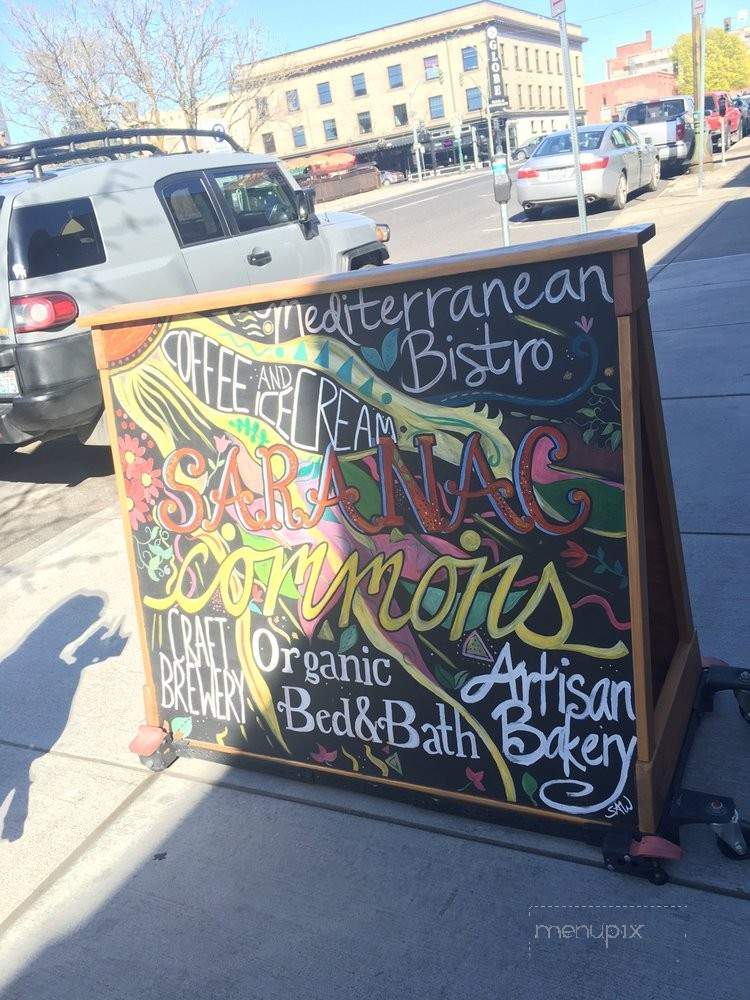 GLOBE
Mediterranean
Bistro
COFFEE AND
ICE CREAM
SARANAC
commons
CRAFT
BREWERY
Organic
Bed&Bath
Artisan
Bakery
SAW
menupix